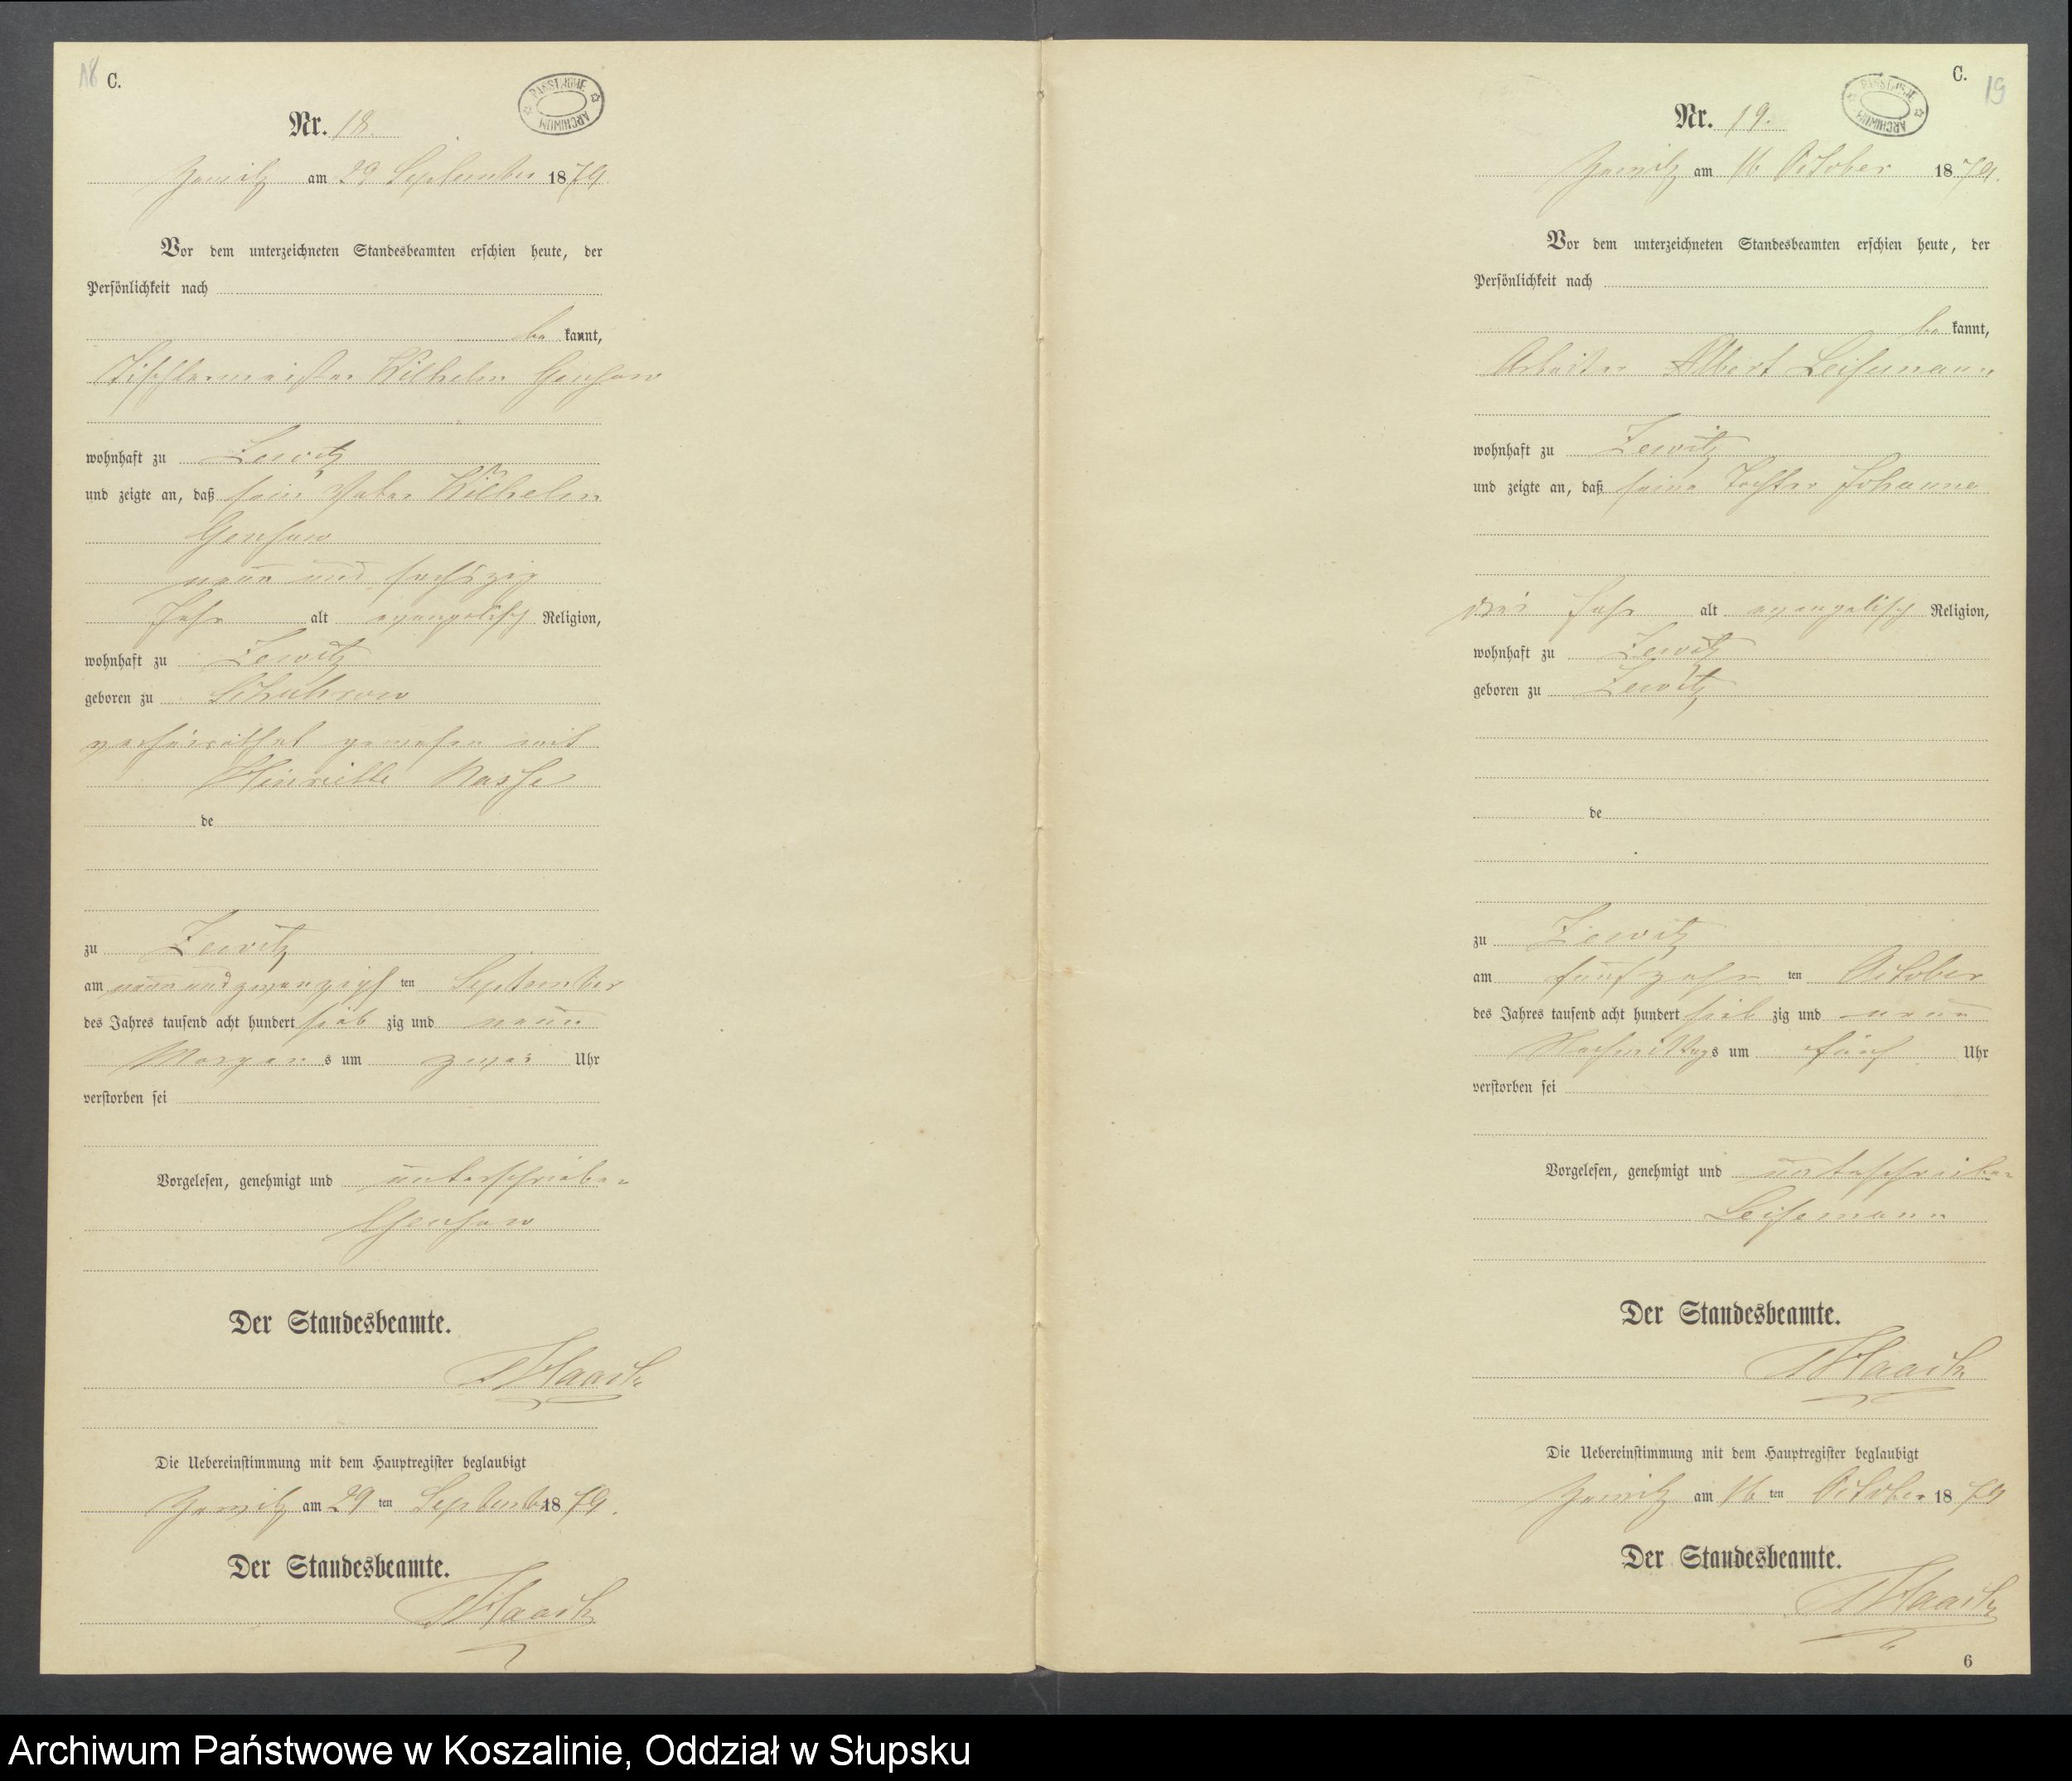 18 C.
PAŃSTWOWE ARCHIWUM
Nr. 18.
am 29 September 1879.
Vor dem unterzeichneten Standesbeamten erschien heute, der
Persönlichkeit nach
be kannt,
Tischlermeister Wilhelm Genhow
wohnhaft zu Zewitz
und zeigte an, daß sein Vater Wilhelm
neun und sechszig
Jahr alt evangelisch Religion,
wohnhaft zu Zewitz
geboren zu
verheirathet gewesen mit
Henriette
de
zu Zewitz
am neunundzwanzigsten September
des Jahres tausend acht hundert sieb zig und neun
Morgens um zwei Uhr
verstorben sei
Vorgelesen, genehmigt und unterschrieben
Der Standesbeamte.
Haack
Die Uebereinstimmung mit dem Hauptregister beglaubigt
am 29 ten September 1879.
Der Standesbeamte.
Haack
C. 19
PAŃSTWOWE ARCHIWUM
Nr. 19.
am 16 October 1879.
Vor dem unterzeichneten Standesbeamten erschien heute, der
Persönlichkeit nach
be kannt,
Arbeiter Albert Leisemann
wohnhaft zu Zewitz
und zeigte an, daß seine Tochter Johanne
drei Jahr alt evangelisch Religion,
wohnhaft zu Zewitz
geboren zu Zewitz
de
zu Zewitz
am fünfzehn ten October
des Jahres tausend acht hundert sieb zig und neun
Nachmittags um fünf Uhr
verstorben sei
Vorgelesen, genehmigt und unterschrieben
Leisemann
Der Standesbeamte.
Haack
Die Uebereinstimmung mit dem Hauptregister beglaubigt
am 16 ten October 1879
Der Standesbeamte.
Haack
6
Archiwum Państwowe w Koszalinie, Oddział w Słupsku